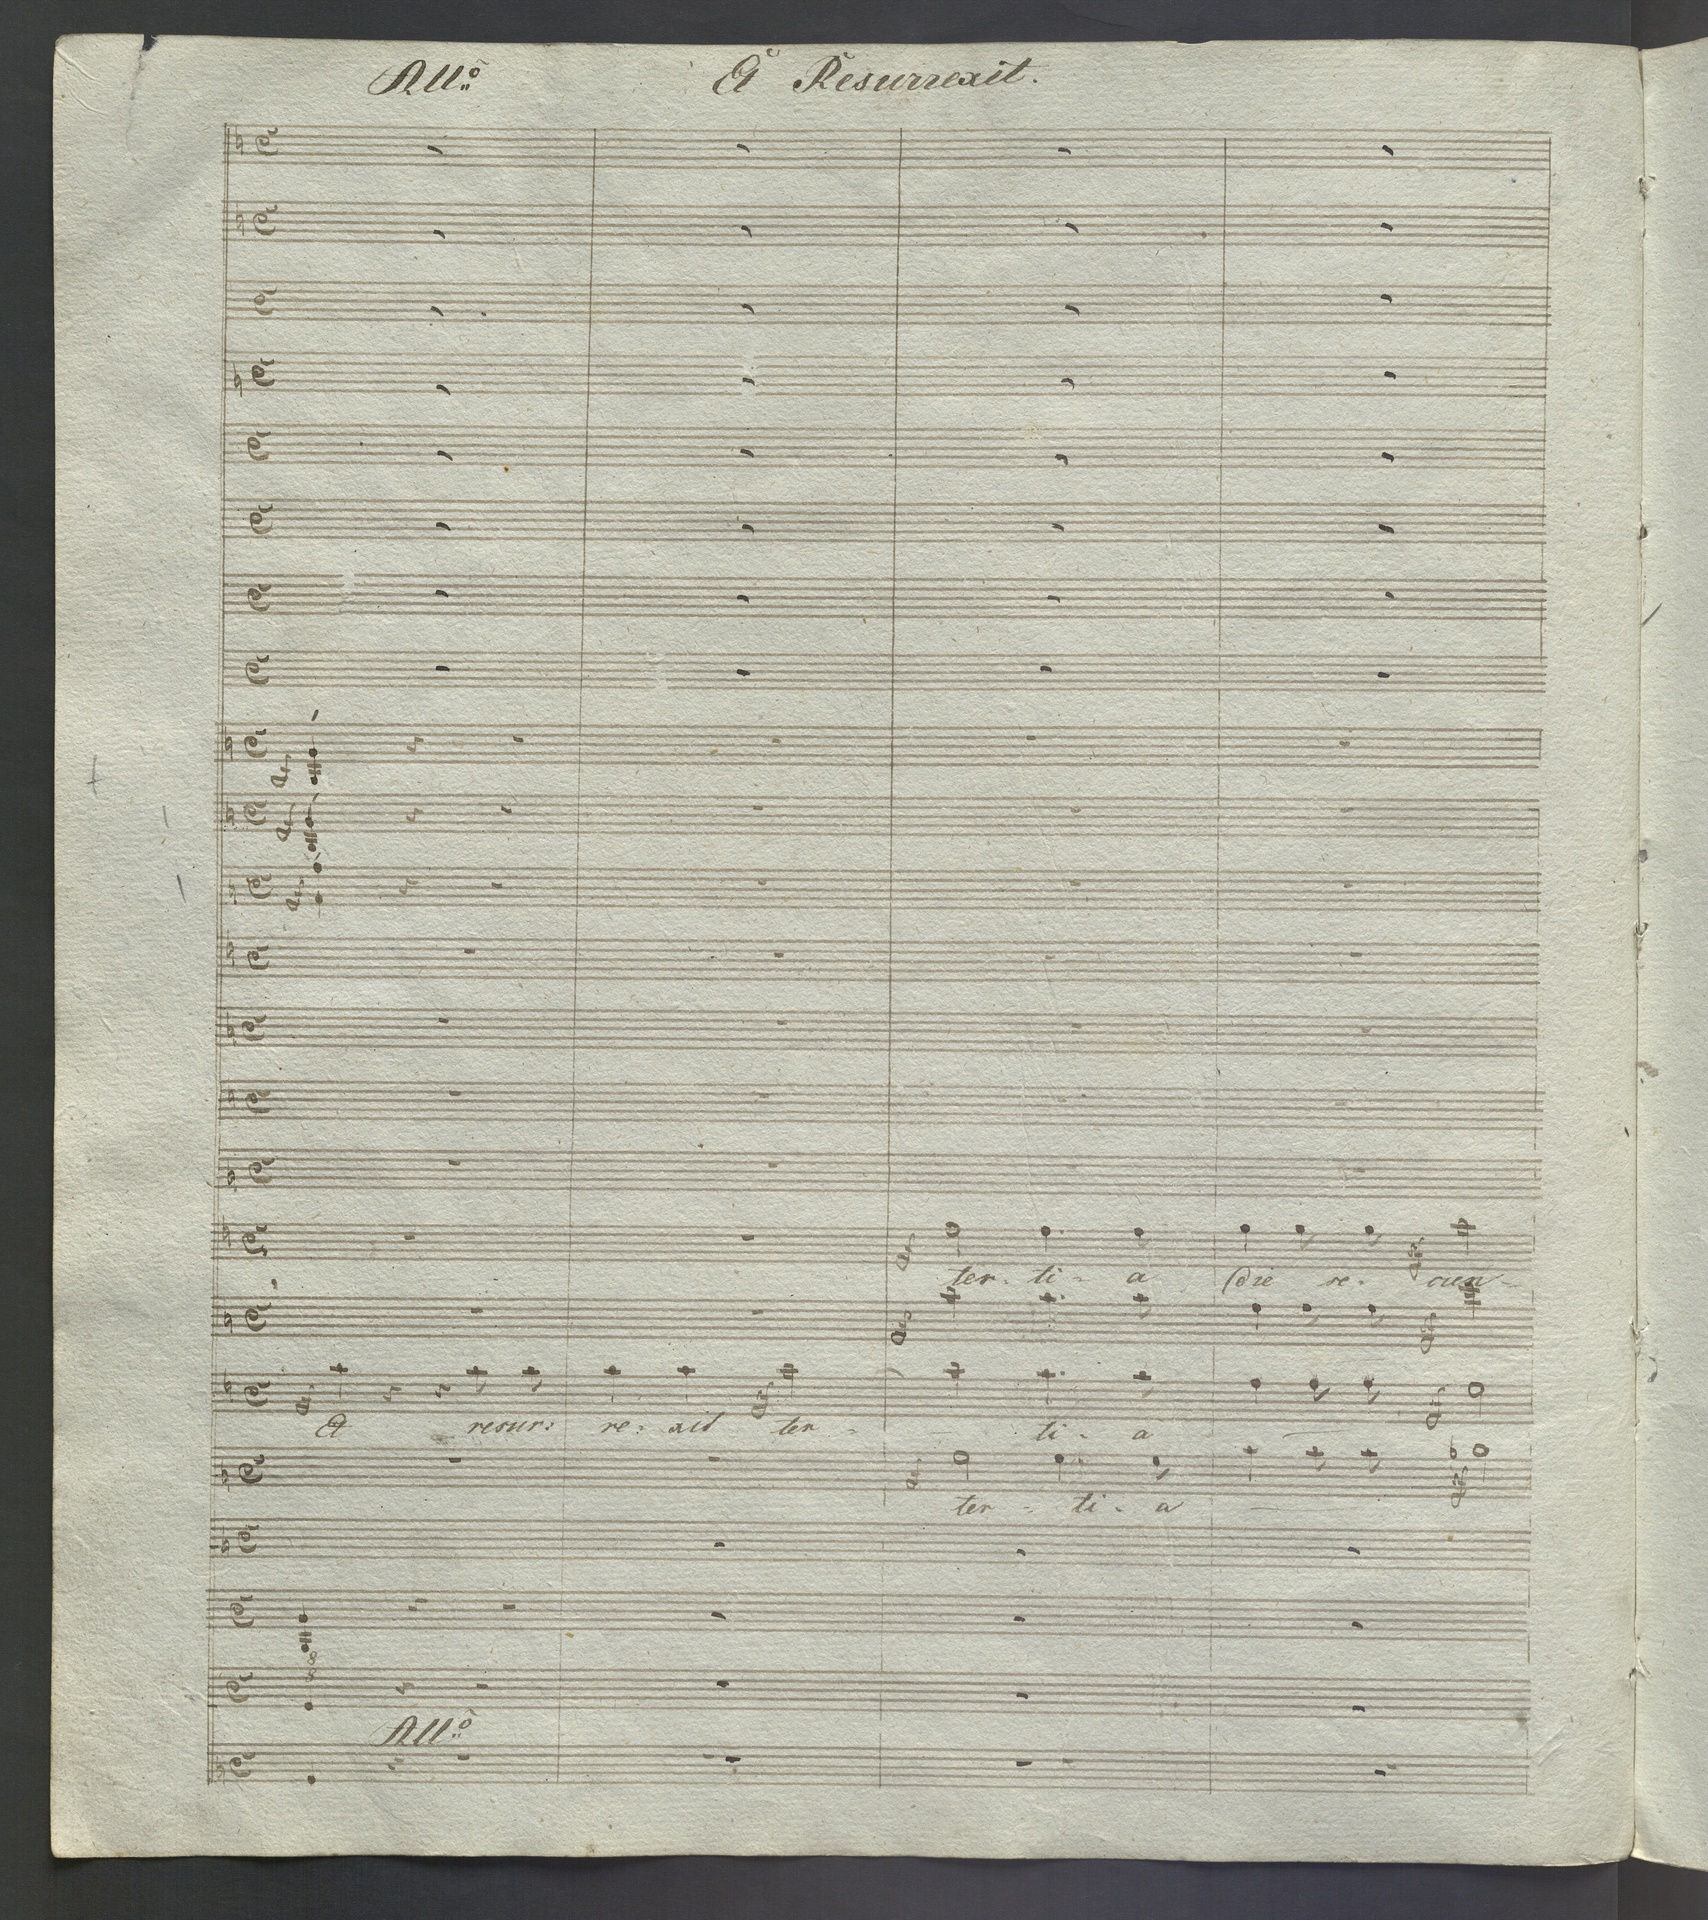 All.º Et Resurrexit.
ter - ti - a die se - cun -
Et resur: re: xit ter - ti - a
ter - ti - a
All.º